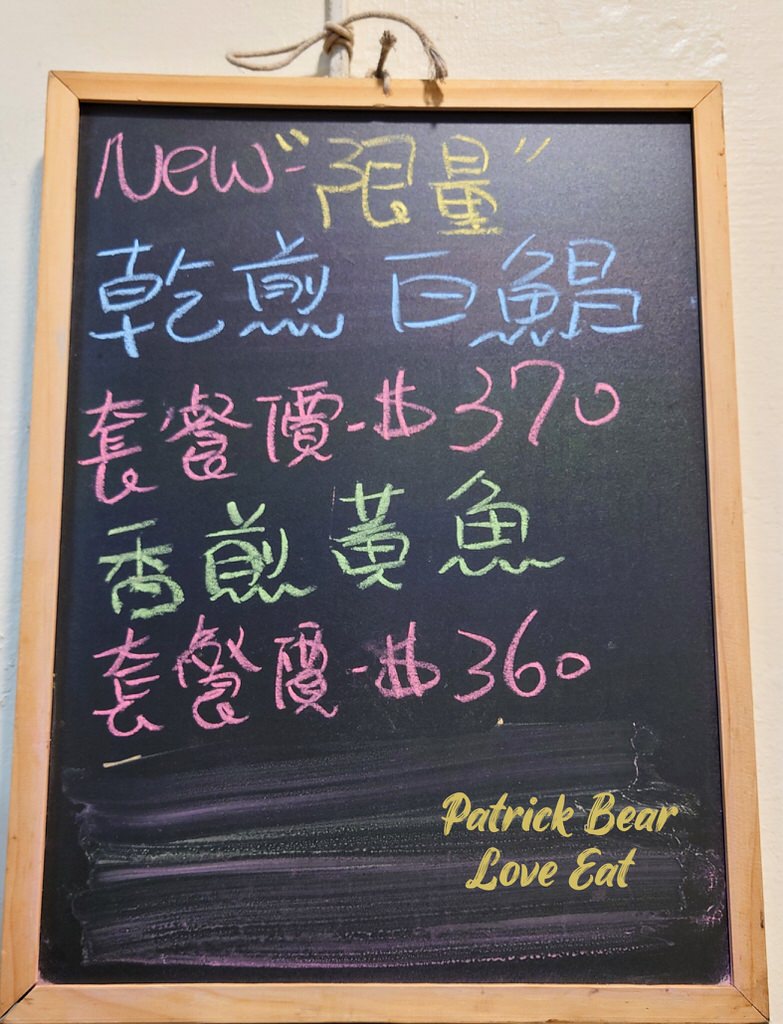 New-"限量"
乾煎白鯧
套餐價-$370
香煎黃魚
套餐價-$360
Patrick Bear
Love Eat